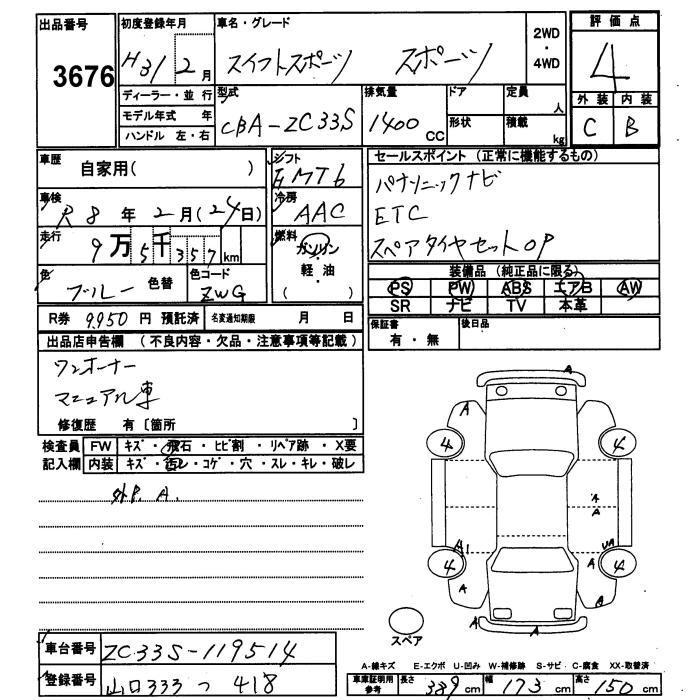 出品番号 3676
初度登録年月 H31 2月
車名・グレード スイフトスポーツ スポーツ
2WD ・ 4WD
評価点 4
外装 内装
C B
ディーラー・並行
モデル年式 年
ハンドル 左・右
型式 CBA-ZC33S
排気量 1400 CC
ドア
形状
定員 人
積載 kg
車歴 自家用( )
車検 R8年2月(24日)
走行 9万5千357km
色 ブルー 色替
色コード ZWG
シフト FMT6
冷房 AAC
燃料 ガソリン
軽・油
( )
セールスポイント (正常に機能するもの)
パナソニックナビ
ETC
スペアタイヤセットOP
装備品 (純正品に限る)
PS PW ABS エアB AW
SR ナビ TV 本革
保証書 有・無
後日品
R券 9,950 円 預託済 名変通知期限 月 日
出品店申告欄 (不良内容・欠品・注意事項等記載)
ワンオーナー
マニュアル車
修復歴 有〔箇所 〕
検査員 FW キズ・飛石・ヒビ割・リペア跡・X要
記入欄 内装 キズ・汚レ・コゲ・穴・スレ・キレ・破レ
外P. A.
A
A
4 4
A
A
A1 UA
4 A 4
A A
A
スペア
車台番号 ZC33S-119514
登録番号 山口333 つ 418
A-線キズ E-エクボ U-凹み W-補修跡 S-サビ C-腐食 XX-取替済
車庫証明用参考 長さ 389cm 幅 173cm 高さ 150cm